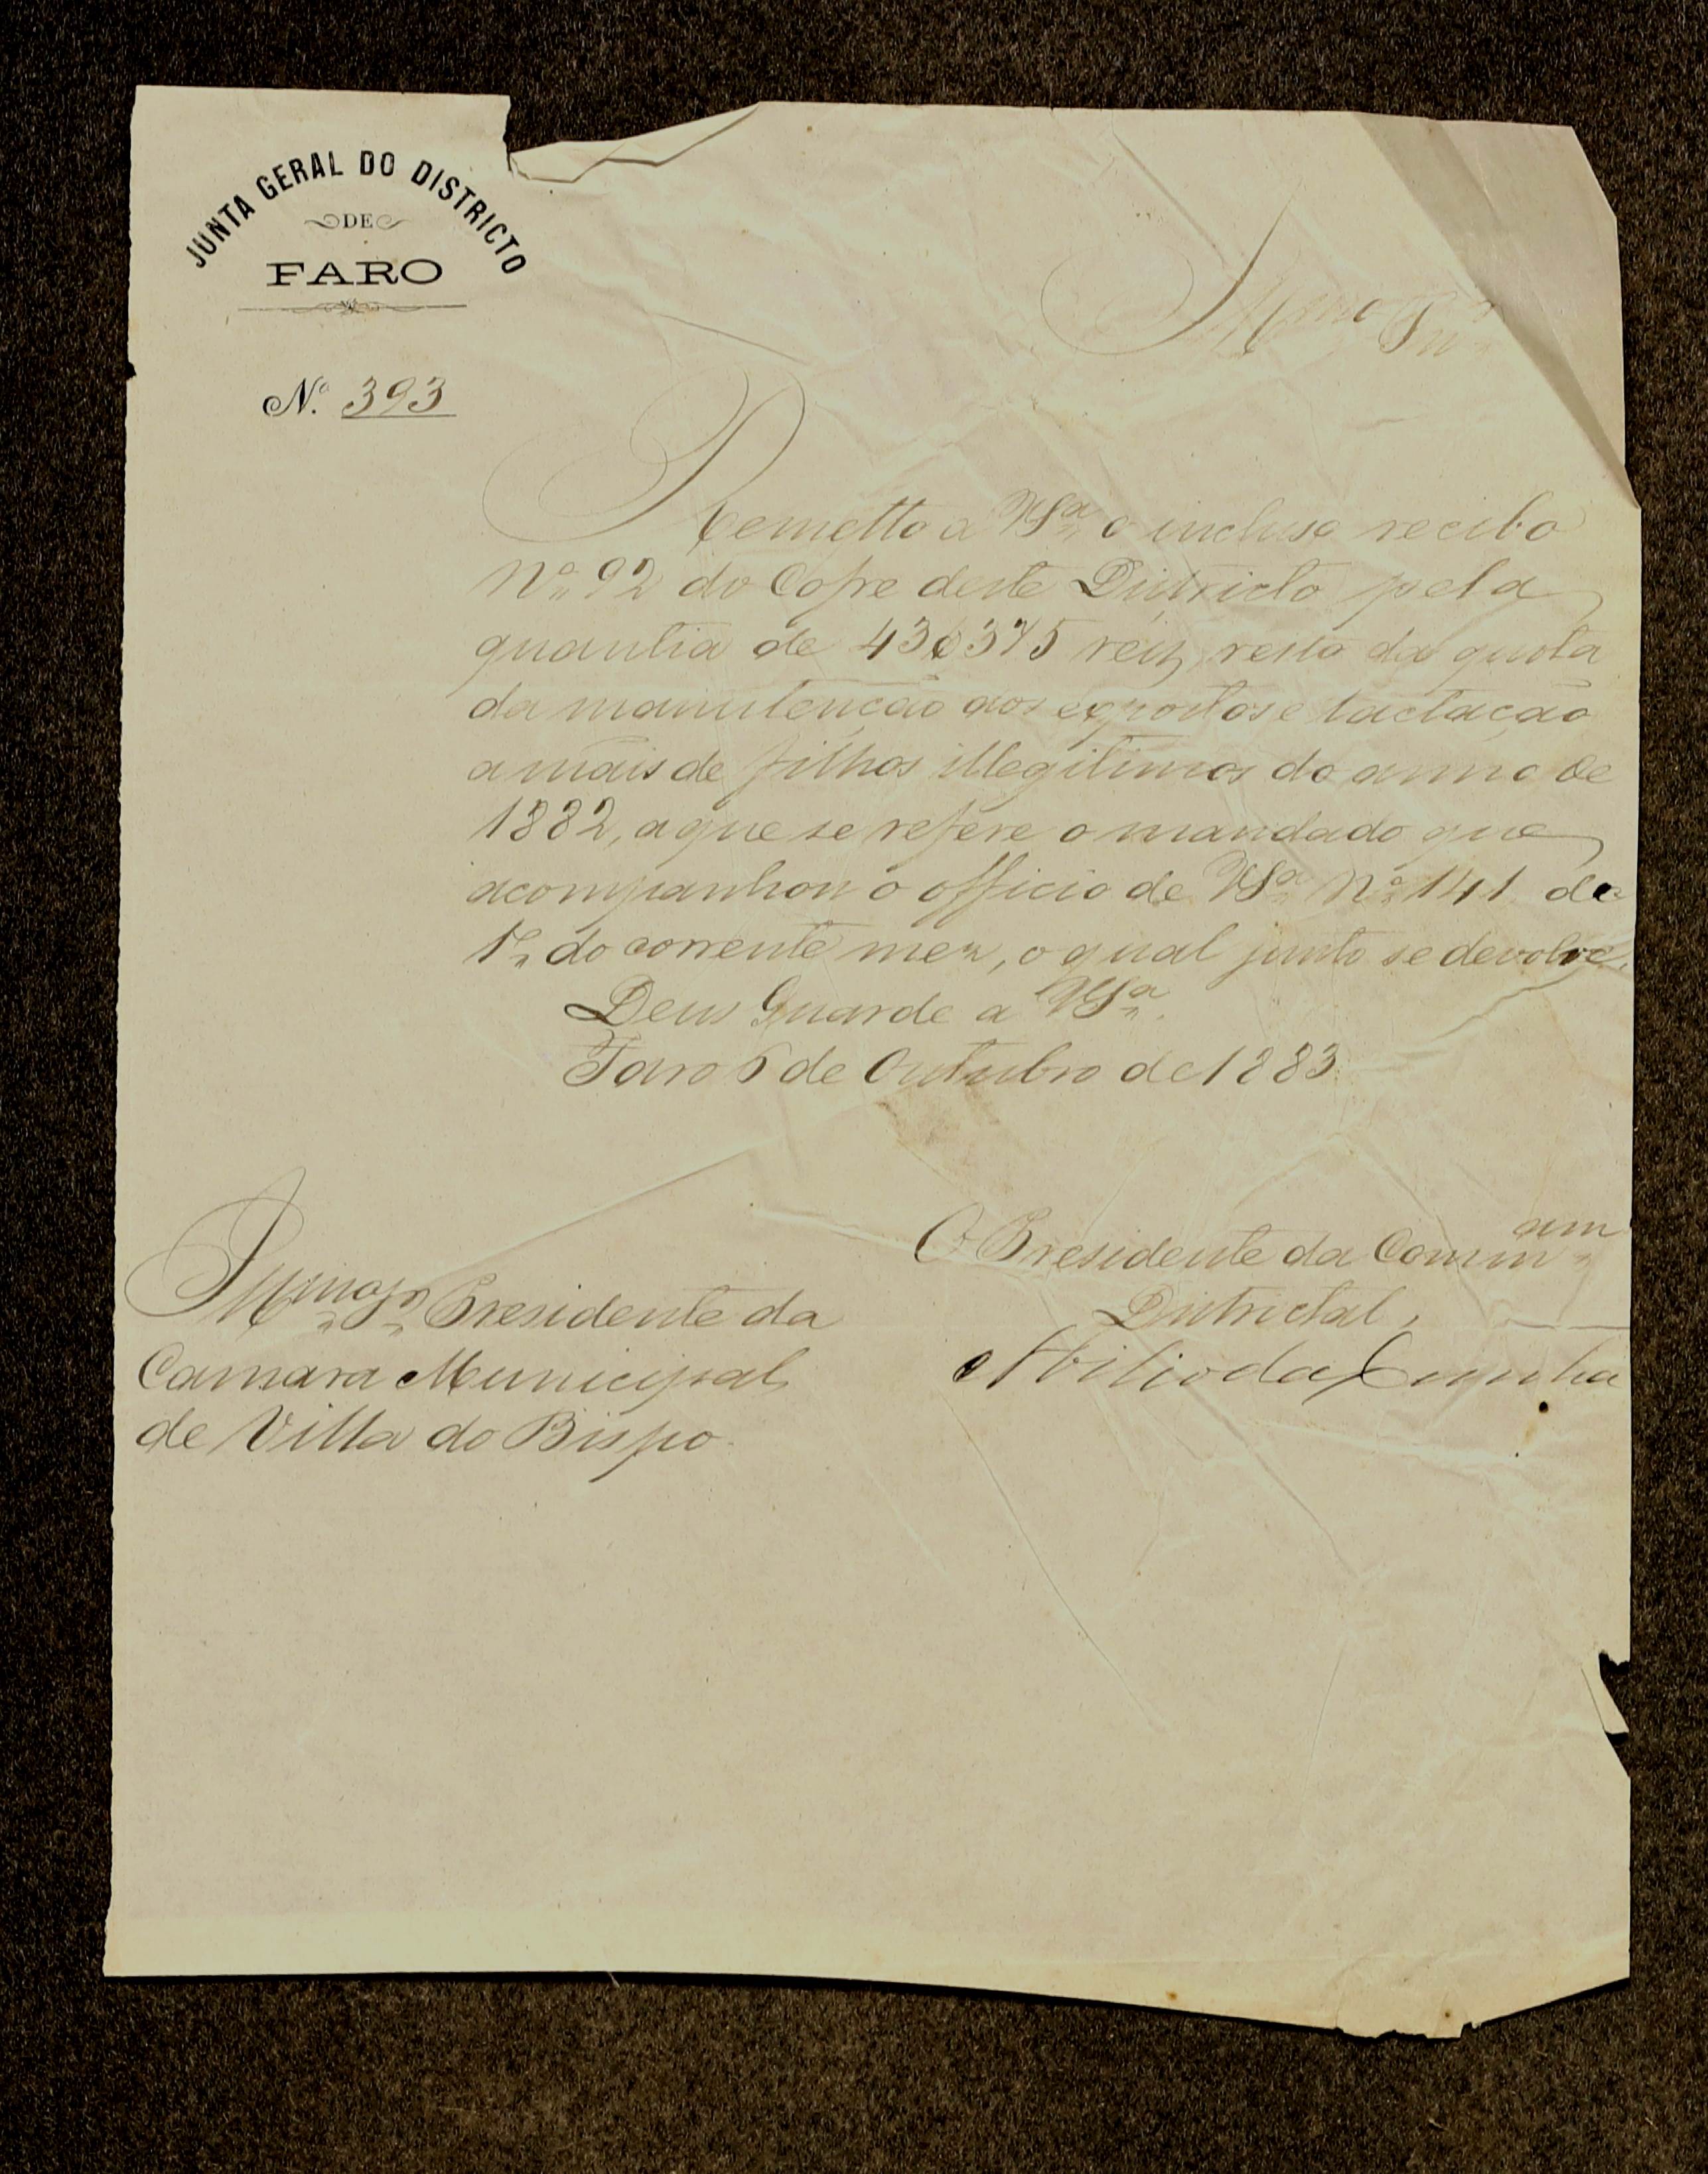 JUNTA GERAL DO DISTRICTO
DE
FARO
N.º 393
Illmo Snr
Remetto a VSª o incluso recibo
Nº 92 do Cofre deste Districto pela
quantia de 43$375 reis, resto da quota
da manutenção aos expostos e lactação
a mais de filhos illegitimos do anno de
1882, a que se refere o mandado que
acompanhou o officio de VSª Nº 141 de
1º do corrente mez, o qual junto se devolve.
Deus Guarde a VSª.
Faro 5 de Outubro de 1883
O Presidente da Commam
Districtal,
Abilio da Cunha
Illmo Sr Presidente da
Camara Municipal
de Villa do Bispo